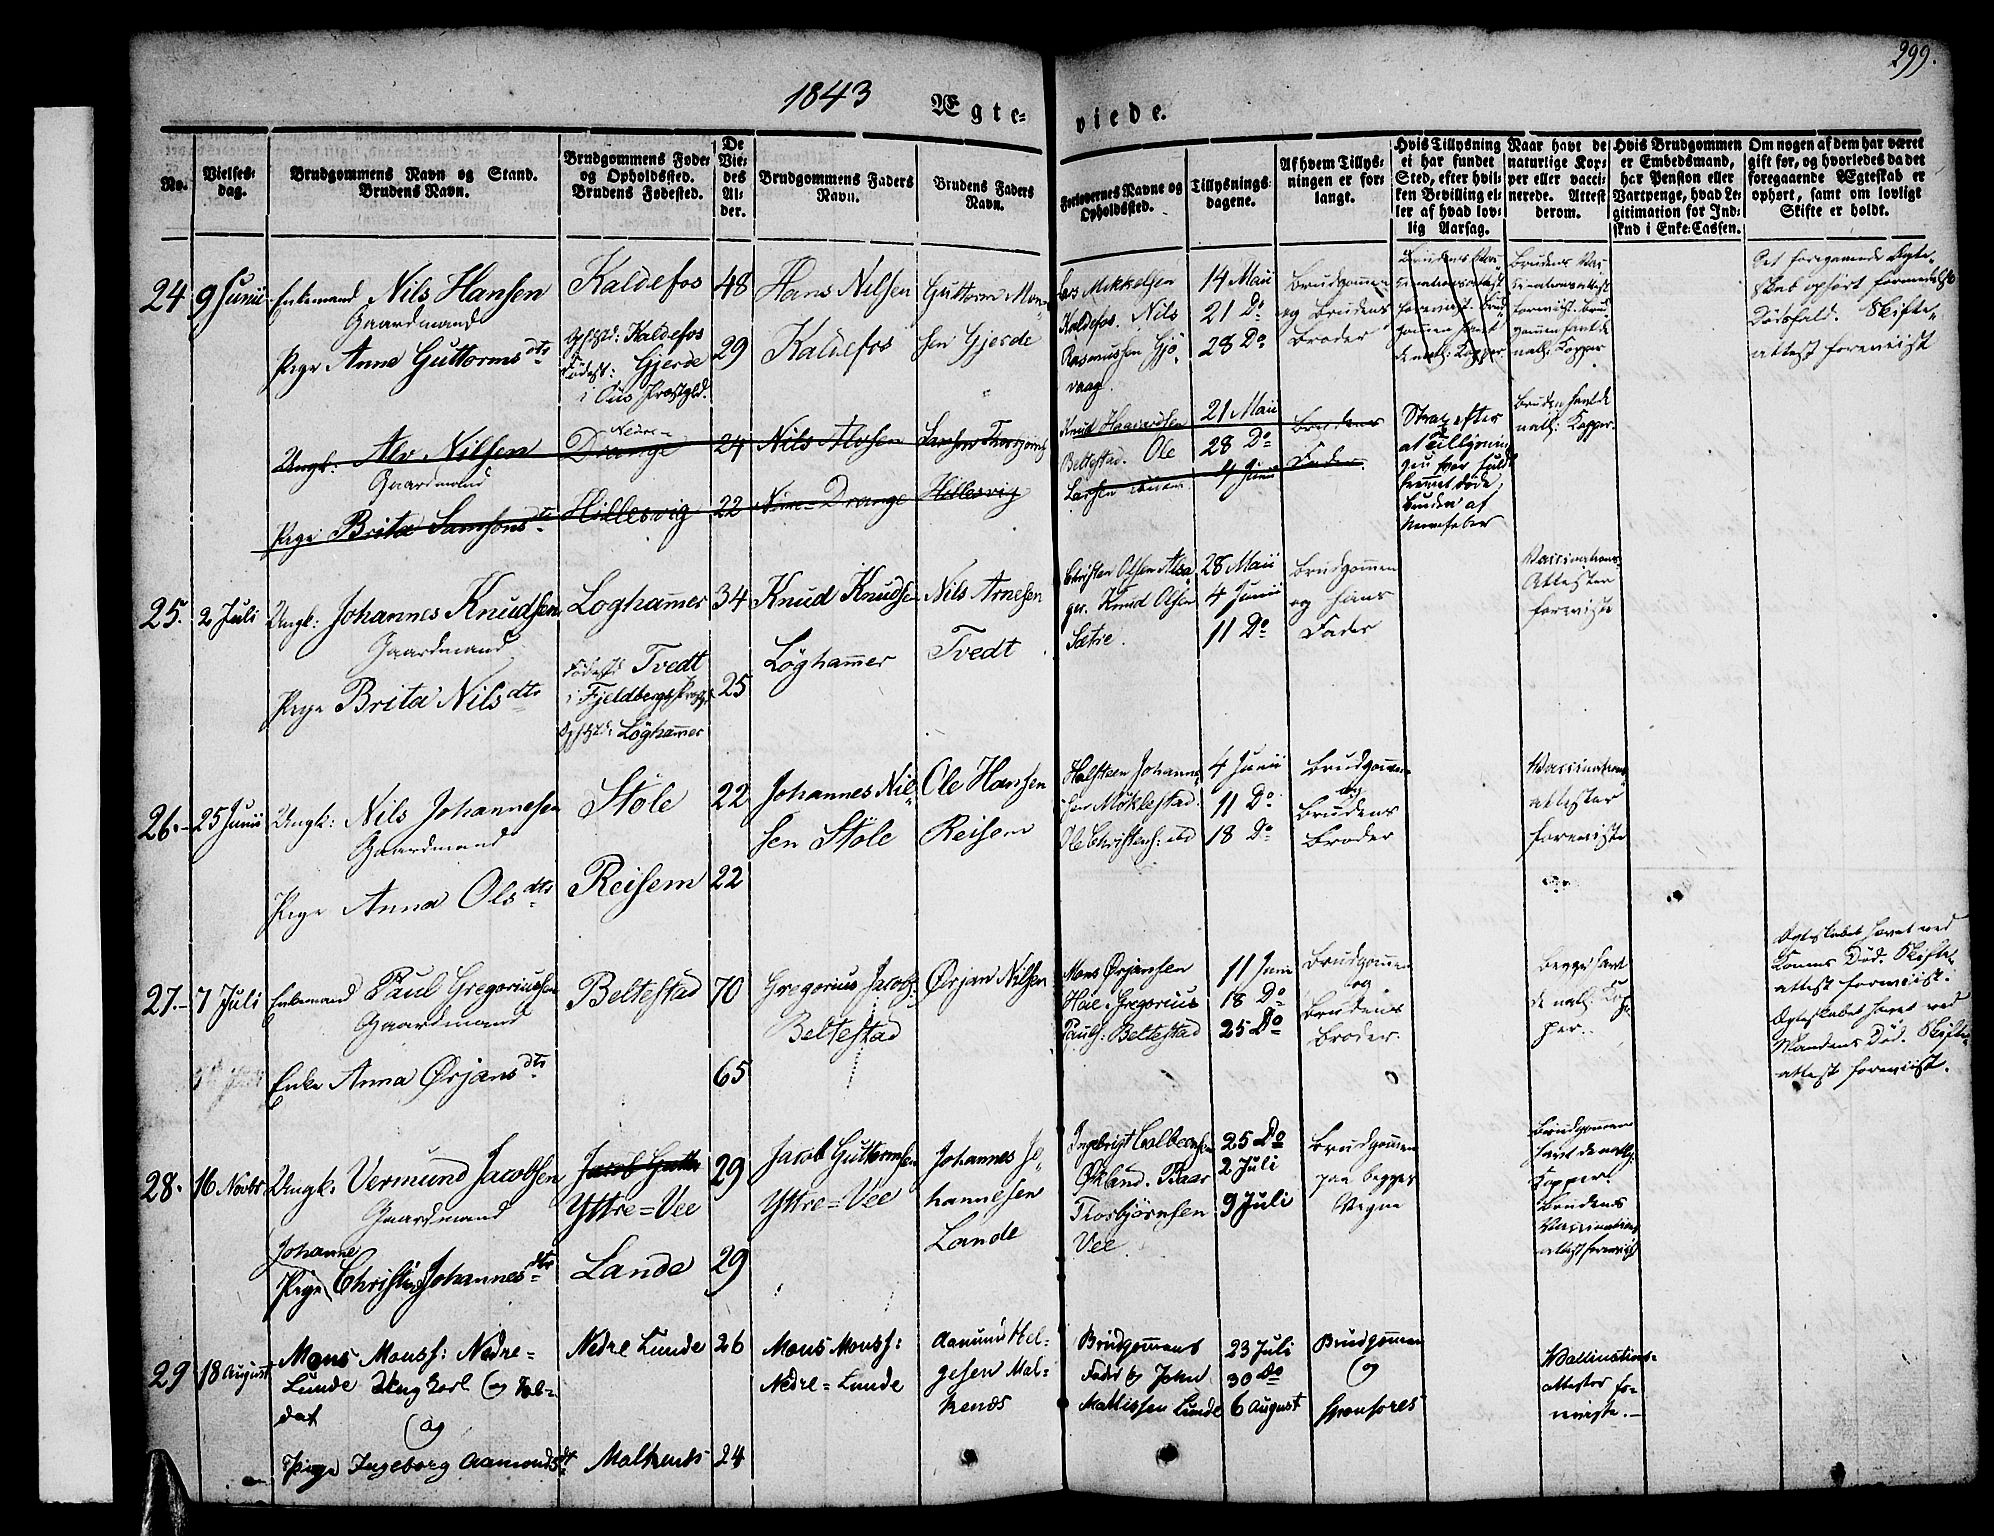 299.
1843
Ægte-
viede.
No.
Vielses-
dag.
Brudgommens Navn og Stand.
Brudens Navn.
Brudgommens Føde-
og Opholdssted.
Brudens Fødested.
De
Vie-
des
Al-
der.
Brudgommens Faders
Navn.
Brudens Faders
Navn.
Forlovernes Navne og
Opholdssted.
Tillysnings-
dagene.
Af hvem Tillys-
ningen er for-
langt.
Hvis Tillysning
ei har fundet
Sted, efter hvil-
ken Bevilling el-
ler af hvad lov-
lig Aarsag.
Naar havt de
naturlige Kop-
per eller vacci-
nerede. Attest
derom.
Hvis Brudgommen
er Embedsmand,
har Pension eller
Vartpenge, hvad Le-
gitimation for Ind-
skud i Enke-Cassen.
Om nogen af dem har været
gift før, og hvorledes da det
foregaaende Ægteskab er
ophørt, samt om lovligt
Skifte er holdt.
24
9 Junii
Enkemand Nils Hansen
Gaardmand
Pige Anna Guttormsdtr
Kaldefos
Ophst: Kaldefos
Fødest: Gjerde
i Ous Præstgld.
48
29
Hans Nilsen
Kaldefos
Guttorm Mon-
sen Gjerde
Lars Mikkelsen
Kaldefos. Nils
Rasmussen Gjø-
vaag
14 Maii
21 Do
28 Do
Brudgommen
og Brudens
Broder
Brudens Vac-
cinationsattest
foreviist. Brud-
gommen havt
de natl: Kopper
Brudens Vac-
cinationsattest
foreviist. Brud-
gommen havt de
natl: Kopper
Det foregaaende Ægte-
skab ophørt formedelst
Dødsfald. Skifte-
attest foreviist
Ungk: Alv Nilsen
Gaardmand
Pige Brita Samsonsdtr
Nedre-
Drange
Hillesvig
24
22
Nils Alvsen
Drange
Hillesvig
Knud Haavardsen
Beltestad. Ole
Larsen
21 Maii
28 Do
4 Junii
Brudens
Fader
Strax efter
at Tillysnin-
gen var fuld-
kommet døde
Bruden af
Nervefeber
Bruden havt de
natl: Kopper.
25.
2 Juli
Ungk: Johannes Knudsen
Gaardmand
Pige Brita Nilsdtr
Løghamer
Fødest: Tvedt
i Fjeldbergs Præstgj.
Ophst: Løghamer
34
25
Knud Knudsen
Løghamer
Nils Arnesen
Tvedt
Christen Olsen Alsa-
ger. Knud Olsen
Sætre.
28 Maii
4 Junii
11 Do
Brudgommen
og hans
Fader
Vaccinations
Attester
foreviste
26.-
25 Junii
Ungk: Nils Johannesen
Gaardmand
Pige Anna Olsdtr
Støle
Reisem
22
22
Johannes Nil-
sen Støle
Ole Hansen
Reisem
Halsteen Johanne-
sen Miklestad
Ole Christens: ibd
4 Junii
11 Do
18 Do
Brudgommen
og
Brudens
Broder
Vaccinations
attester
foreviste
27.-
7 Juli
Enkemand Paul Gregoriussen
Gaardmand
Enke Anna Ørjansdtr
Beltestad
70
65
Gregorius Jacobs:
Beltestad
Ørjan Nilsen
Mons Ørjansen
Hoie. Gregorius
Pauls: Beltestad
11 Juni
18 Do
25 Do
Brudgommen
og
Brudens
Broder.
Begge havt
de natl: Kop-
per.
Ægteskabet hævet ved
Konens Død. Skifte-
attest foreviist.
Ægteskabet hævet ved
Mandens Død. Skifte-
attest foreviist.
28.
16 Novbr
Ungk: Vermund Jacobsen
Gaardmand
Johanne
Pige Christi Johannesdtr
Jacob Gutto
Yttre=Vee
Lande
29
29
Jacob Guttormsen
Yttre=Vee
Johannes Jo-
hannesen
Lande
Ingebrigt Colbeensen
Økland. Baar
Thorbjørnsen
Vee.
25 Do
2 Juli
9 Juli
Brudgommen
paa begges
Vegne
Brudgommen
havt de natlg.
Kopper.
Brudens
Vaccinations
attest foreviist
29
18 August
Mons Monss: Nedre=
Lunde Ungkarl og Sol-
dat
og
Pige Ingeborg Aamundsdt
Nedre Lunde
Malkenes
26
24
Mons Monss:
Nedre=Lunde
Aamund Hel-
gesen Mal-
kenes
Brudgommens
Fader og John
Mathissen Lunde
23 Juli
30 Do
6 August
Brudgommen
og
Sponsores
Vaccinations-
attester fo-
reviste.-